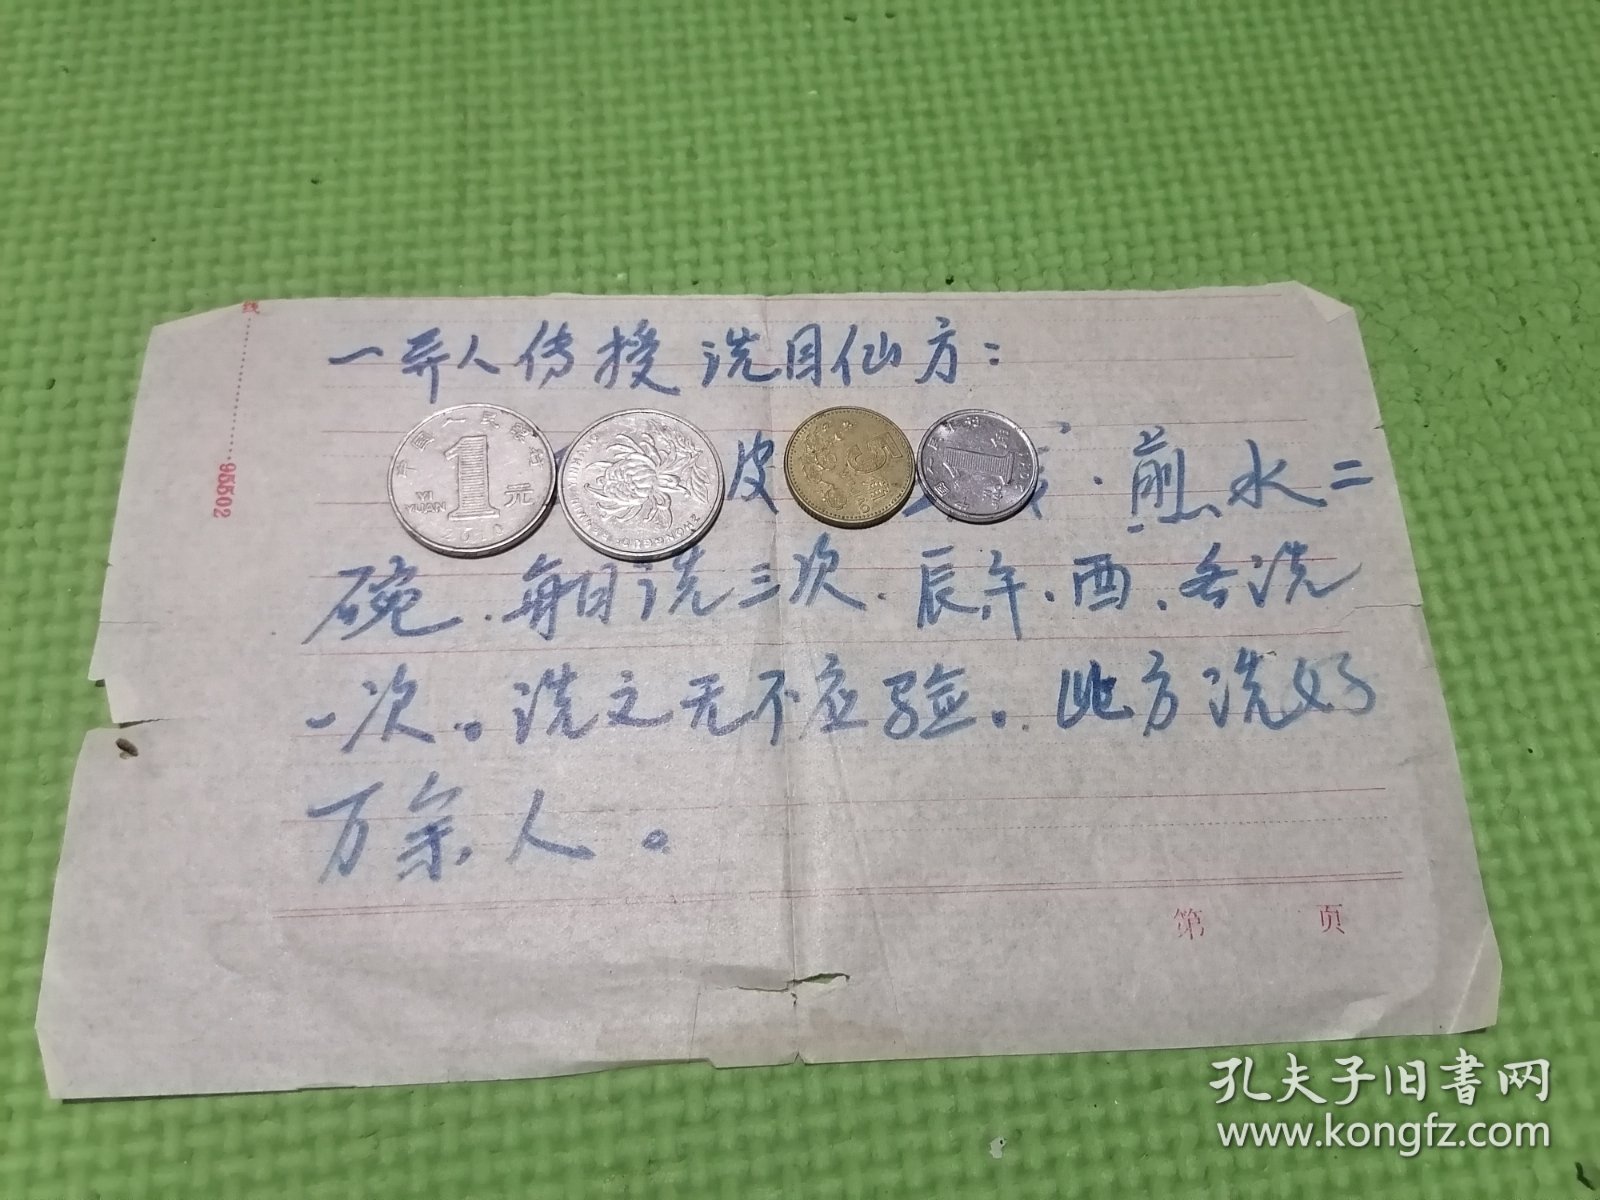 线
95502
一异人传授洗目仙方：
皮 煎水二
碗．每日洗三次．辰午．酉．各洗
一次。洗之无不应验。此方洗好
万余人。
第 页
中国人民银行
1
YI YUAN
元
5
1
孔夫子旧书网
www.kongfz.com